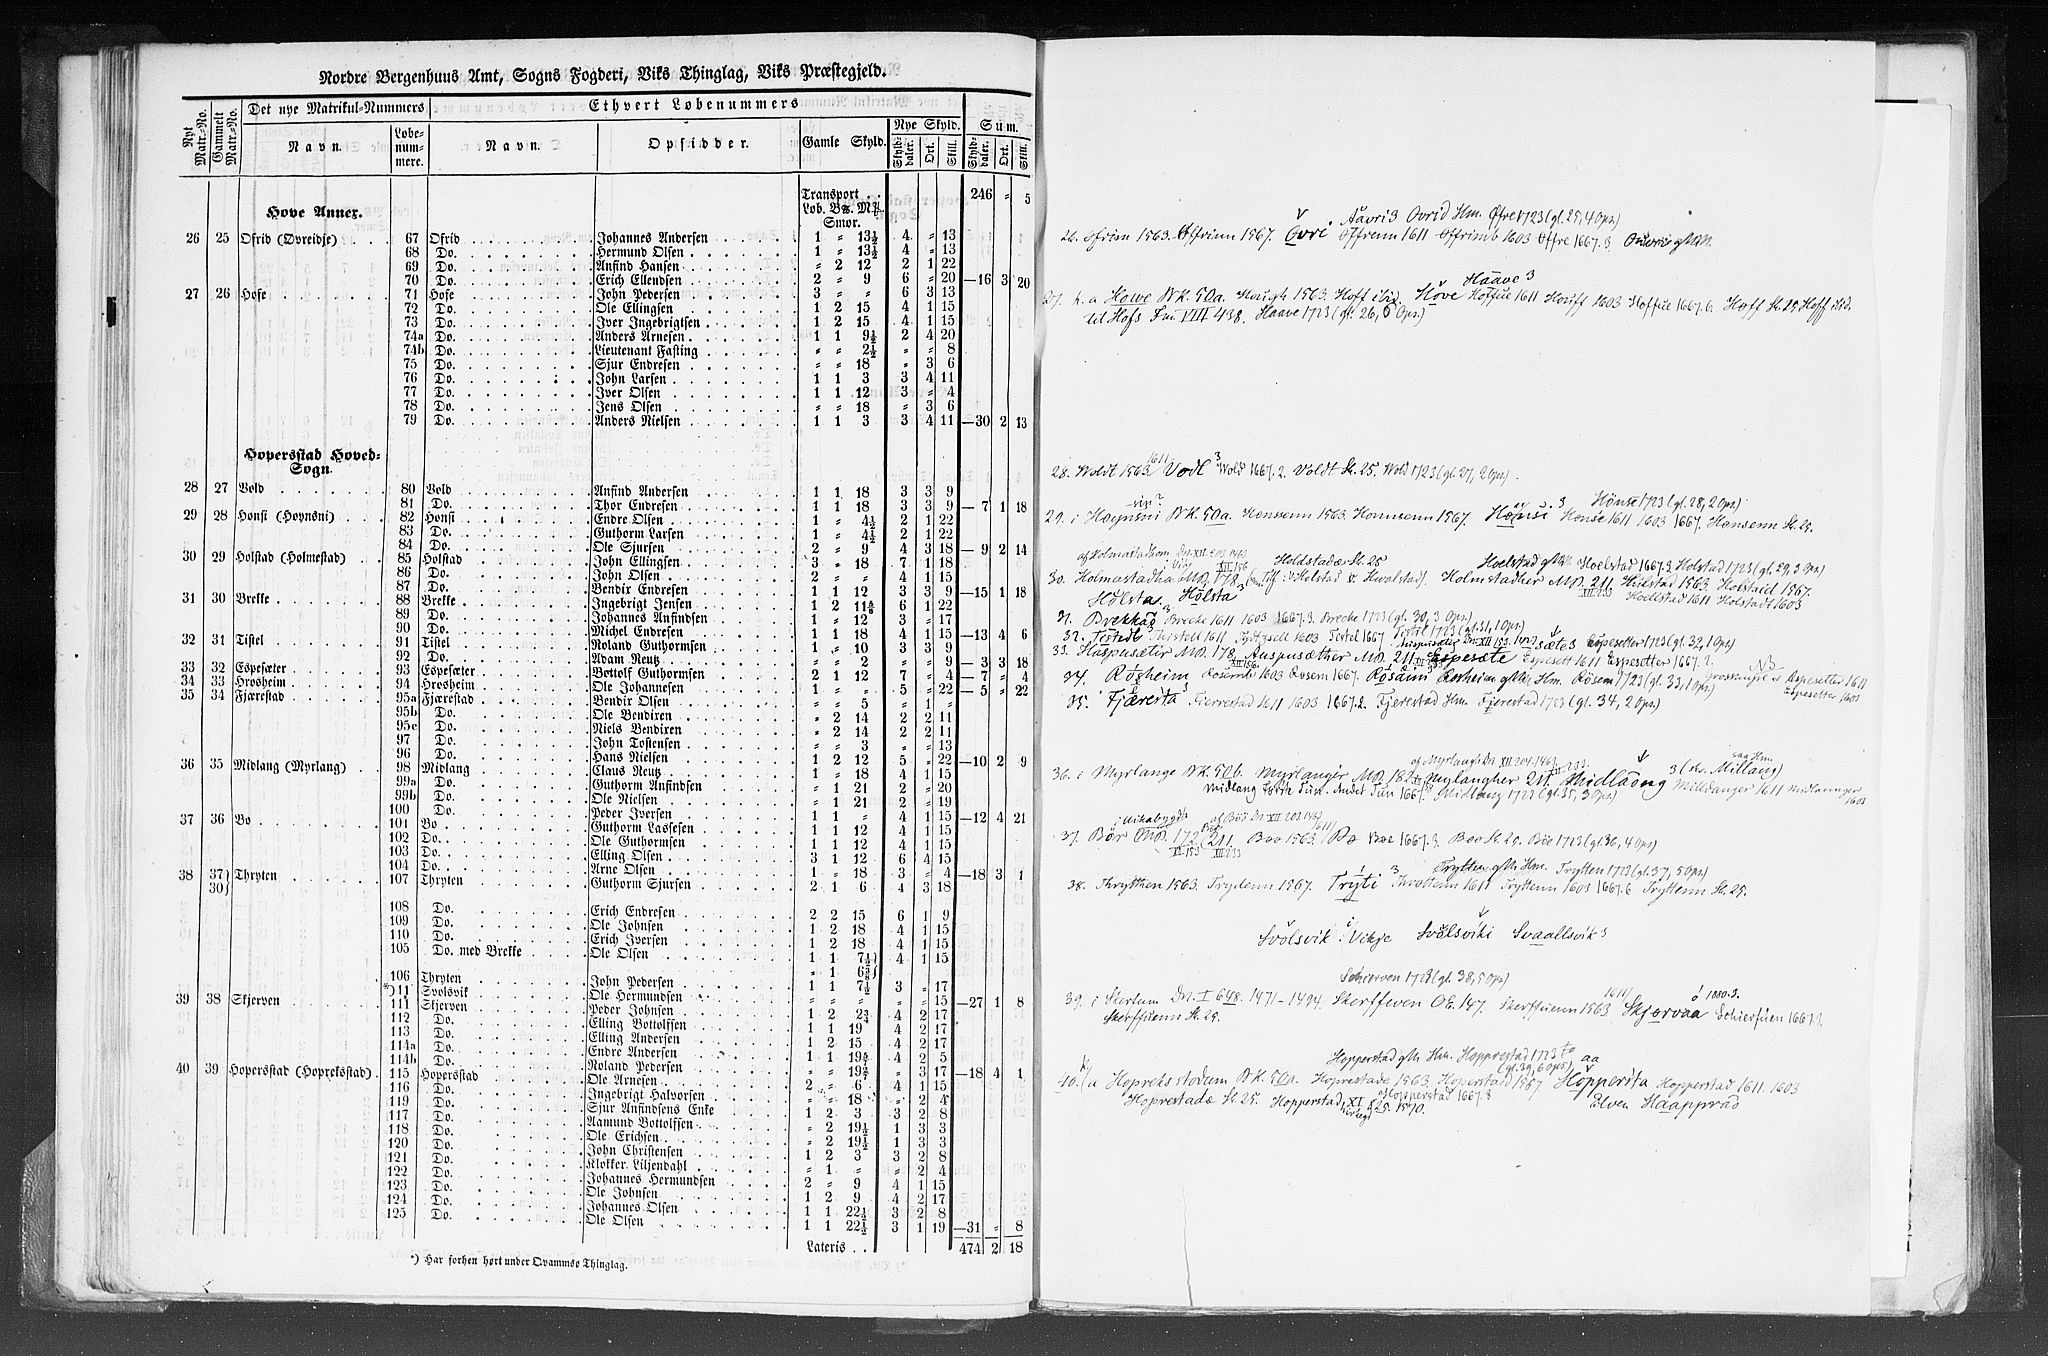 Nordre Bergenhuus Amt, Sogns Fogderi, Viks Thinglag, Viks Præstegjeld.
Nyt Matr.-No. Gammelt Matr.-No. Det nye Matrikul-Nummers Ethvert Løbenummers
Navn. Løbe-nummere. Navn. Opsidder. Gamle Skyld. Nye Skyld. Sum.
Skylddaler. Ort. Skill. Skylddaler. Ort. Skill.
Transport . . 246 „ 5
Løb. Bℳ. M℔
Smør.
Hove Annex.
26 25 Ofrid (Ovreidje) 67 Ofrid Johannes Andersen 1 „ 13½ 4 „ 13
68 Do. Hermund Olsen 1 „ 13½ 4 „ 13
69 Do. Anfind Hansen „ 2 12 2 1 22
70 Do. Erich Ellendsen 2 „ 9 6 „ 20 —16 3 20
27 26 Hofe 71 Hofe John Pedersen 3 „ „ 6 3 13
72 Do. Ole Ellingsen 1 2 15 4 1 15
73 Do. Iver Ingebrigtsen 1 2 15 4 1 15
74a Do. Anders Arnesen 1 1 9½ 2 4 20
74b Do. Lieutenant Fasting „ „ 2½ „ „ 8
75 Do. Sjur Endresen „ „ 18 „ 3 6
76 Do. John Larsen 1 1 3 3 4 11
77 Do. Iver Olsen 1 1 12 3 „ 4
78 Do. Jens Olsen „ „ 18 „ 3 6
79 Do. Anders Nielsen 1 1 3 3 4 11 —30 2 13
Hopersstad Hoved-
Sogn.
28 27 Vold 80 Vold Anfind Andersen 1 1 18 3 3 9
81 Do. Thor Endresen 1 1 18 3 3 9 —7 1 18
29 28 Honsi (Hoynsni) 82 Honsi Endre Olsen 1 „ 4½ 2 1 22
83 Do. Guthorm Larsen 1 „ 4½ 2 1 22
84 Do. Ole Sjursen 2 „ 9 4 3 18 —9 2 14
30 29 Holstad (Holmestad) 85 Holstad John Ellingsen 3 „ 18 7 1 18
86 Do. John Olsen 2 „ „ 4 1 15
87 Do. Bendix Endresen 1 1 12 3 3 9 —15 1 18
31 30 Brekke 88 Brekke Ingebrigt Jensen 1 2 11⅝ 6 1 22
89 Do. Johannes Anfindsen 1 „ 12 3 „ 17
90 Do. Michel Endresen 1 1 18 4 1 15 —13 4 6
32 31 Tistel 91 Tistel Roland Guthormsen 1 „ 10 3 3 9
92 Do. Adam Reutz „ „ 2 „ „ 9 —3 3 18
33 32 Espesæter 93 Espesæter Bottolf Guthormsen 2 1 12 7 „ 4 —7 „ 4
34 33 Hrosheim 94 Hrosheim Ole Johannesen 1 „ „ 5 „ 22 —5 „ 22
35 34 Fjærestad 95a Fjærestad Bendix Olsen „ „ 5 „ 1 „
95b Do. Ole Bendixen „ 2 14 2 2 11
95c Do. Niels Bendixen „ 2 14 2 2 11
97 Do. John Tostensen „ „ 3 „ „ 13
96 Do. Hans Nielsen 1 2 12 5 „ 22 —10 2 9
36 35 Midlang (Myrlang) 98 Midlang Claus Reutz 1 „ 18 4 1 15
99a Do. Guthorm Anfindsen „ 1 21 2 „ 20
99b Do. Ole Nielsen „ 1 21 2 „ 19
100 Do. Peder Iversen 1 1 „ 4 1 15 —12 4 21
37 36 Bo 101 Bo Guthorm Lassesen 1 1 12 4 1 15
102 Do. Ole Guthormsen 1 1 12 4 1 15
103 Do. Elling Olsen 3 1 12 6 4 15
104 Do. Arne Olsen 1 „ 18 3 „ 4 —18 3 1
38 37 30} Thryten 107 Thryten Guthorm Sjursen 2 1 6 4 3 18
108 Do. Erich Endresen 2 2 15 6 1 9
109 Do. Ole Johnsen 1 2 18 4 1 15
110 Do. Erich Iversen 1 2 18 4 1 15
105 Do. med Brekke Ole Olsen 1 1 7½} 4 1 15
„ 1 6⅜}
106 Thryten John Pedersen 1 1 7½ 3 „ 17
*)11 Svolsvik Ole Hermundsen „ „ „ „ „ 15 —27 1 8
39 38 Skjerven 111 Skjerven Peder Johnsen 1 2 2¾ 4 2 17
112 Do. Elling Bottolfsen 1 1 19 4 2 17
113 Do. Elling Andersen 1 2 15 4 2 17
114a Do. Endre Andersen 1 1 19 4 2 5
114b Do. Roland Pedersen „ „ 19½ „ 3 17 —18 4 1
40 39 Hopersstad (Hopreksstad) 115 Hopersstad Ole Arnesen 2 „ 6 4 1 15
116 Do. Ingebrigt Halvorsen „ „ 18 „ 2 4
119 Do. Sjur Anfindsens Enke 1 2 3 3 2 8
117 Do. Aamund Bottolfsen „ 2 19½ 1 3 3
118 Do. Ole Erichsen „ 2 19½ 1 3 3
120 Do. John Christensen 1 2 3 3 2 8
121 Do. Klokker Liljendahl „ 1 „ „ 2 4
122 Do. Johannes Hermundsen 2 „ 9 4 1 15
123 Do. Ole Johnsen 1 2 9 4 2 17
124 Do. Johannes Olsen 1 1 22½ 3 2 8
125 Do. Ole Olsen 1 1 22½ 3 1 19 —31 „ 8
Lateris . . 474 2 18
*) Har forhen hørt under Qvammsø Thinglag.
Aavri3 Ovrid Hm. Øfre 1723 (gl. 25, 4 Ops.)
26. Offrim 1563. Offrium 1567. Ovri Offrenn 1611 Offrimb 1603 Offre 1667. 3
Haave3
27. k. a Howe BK. 50a. Hough 1563. Hoff ibid. Hove Hoffue 1611 Houff 1603 Hoffue 1667. 6. Hoff St. 25 Hoff ibd.
til Hofs Fm VIII 438. Haave 1723 (gl. 26, 6 Ops.)
28. Woldt 1563. 1611 Vodl 3 Wold 1667. 2. Voldt St. 25. Wold 1723 (gl. 27, 2 Ops.)
Hønse 1723 (gl. 28, 2 Ops.)
29. i Hoynsni BK. 50a. Honssenn 1563. Honnsenn 1567. Hønsi 3 Honse 1611 1603 1667. Honsenn St. 25.
Holdstade St. 25 Hoelstad 1667. 3 Holstad 1723 (gl. 29, 3 Ops.)
30. Holmastadha MP. 178 Holmstadher MP. 211 Holstad 1563. Holstaid 1567.
Holsta. Hølsta 3 Hoelstad 1611 Holstadt 1603
31. Brekka 3. Brecke 1611 1603 1667. 3. Brecke 1723 (gl. 30, 3 Ops.)
32. Tistedl 3 Thistell 1611 Tistel 1667 Tistel 1723 (gl. 31, 1 Ops.)
33. Haspusætir MP. 178. Auspusæther MP. 211 Espesæte Espesett 1611 Espesetter 1667. 2. Espesetter 1723 (gl. 32, 1 Ops.)
34. Røsheim Rosemb 1603 Rosem 1667. Hm. Røsem 1723 (gl. 33, 1 Ops.)
Espesetter 1611
Espesetter 1603
35. Fjæresta 3 Fierrestad 1611 1603 1667. 2. Fjerestad Hm. Fjerestad 1723 (gl. 34, 2 Ops.)
af Myrlangi Dn. XII 204. 1463
36. i Myrlange BK. 50b. Myrlanger MP. 182. Mylangher 211 Midlaong 3 (sv. Millang) Milldanger 1611 Midlannger 1603
Midlang 1723 (gl. 35, 3 Ops.)
i Vikabygd af Bøi Dn. XII 202 1463
37. Bør MP. 172, 211. Boo 1563. 1611 Bø Boe 1667. 3. Boo St. 25. Bøe 1723 (gl. 36, 4 Ops.)
Trytten Hm. Trytten 1723 (gl. 37, 5 Ops.)
38. Thrytthen 1563. Trydenn 1567. Tryti 3 Throttenn 1611 Tryttenn 1603 1667. 6 Tryttenn St. 25.
Svolsvik i Vikje Svolsviki Svaallsvik 3
Schierven 1723 (gl. 38, 5 Ops.)
39. i Skerlum Dn. I 648. 1471–1494. Skerffwen OE. 147. Skerffuenn 1563. 1611 Skjorvaa Schierfuen 1667.
Skerffuenn St. 25.
Hopperstad Hm. Hopprestad 1723 (gl. 39, 6 Ops.)
40. k/a Hoprekstodum BK. 50a. Hoprestade 1563. Hoperstaid 1567 Hoppersta Hopperstad 1611 1603
Hoprestadæ St. 25. Hopperstad, XI 525. 1570. Hopperstad 1667. 8 Elven Haapprao